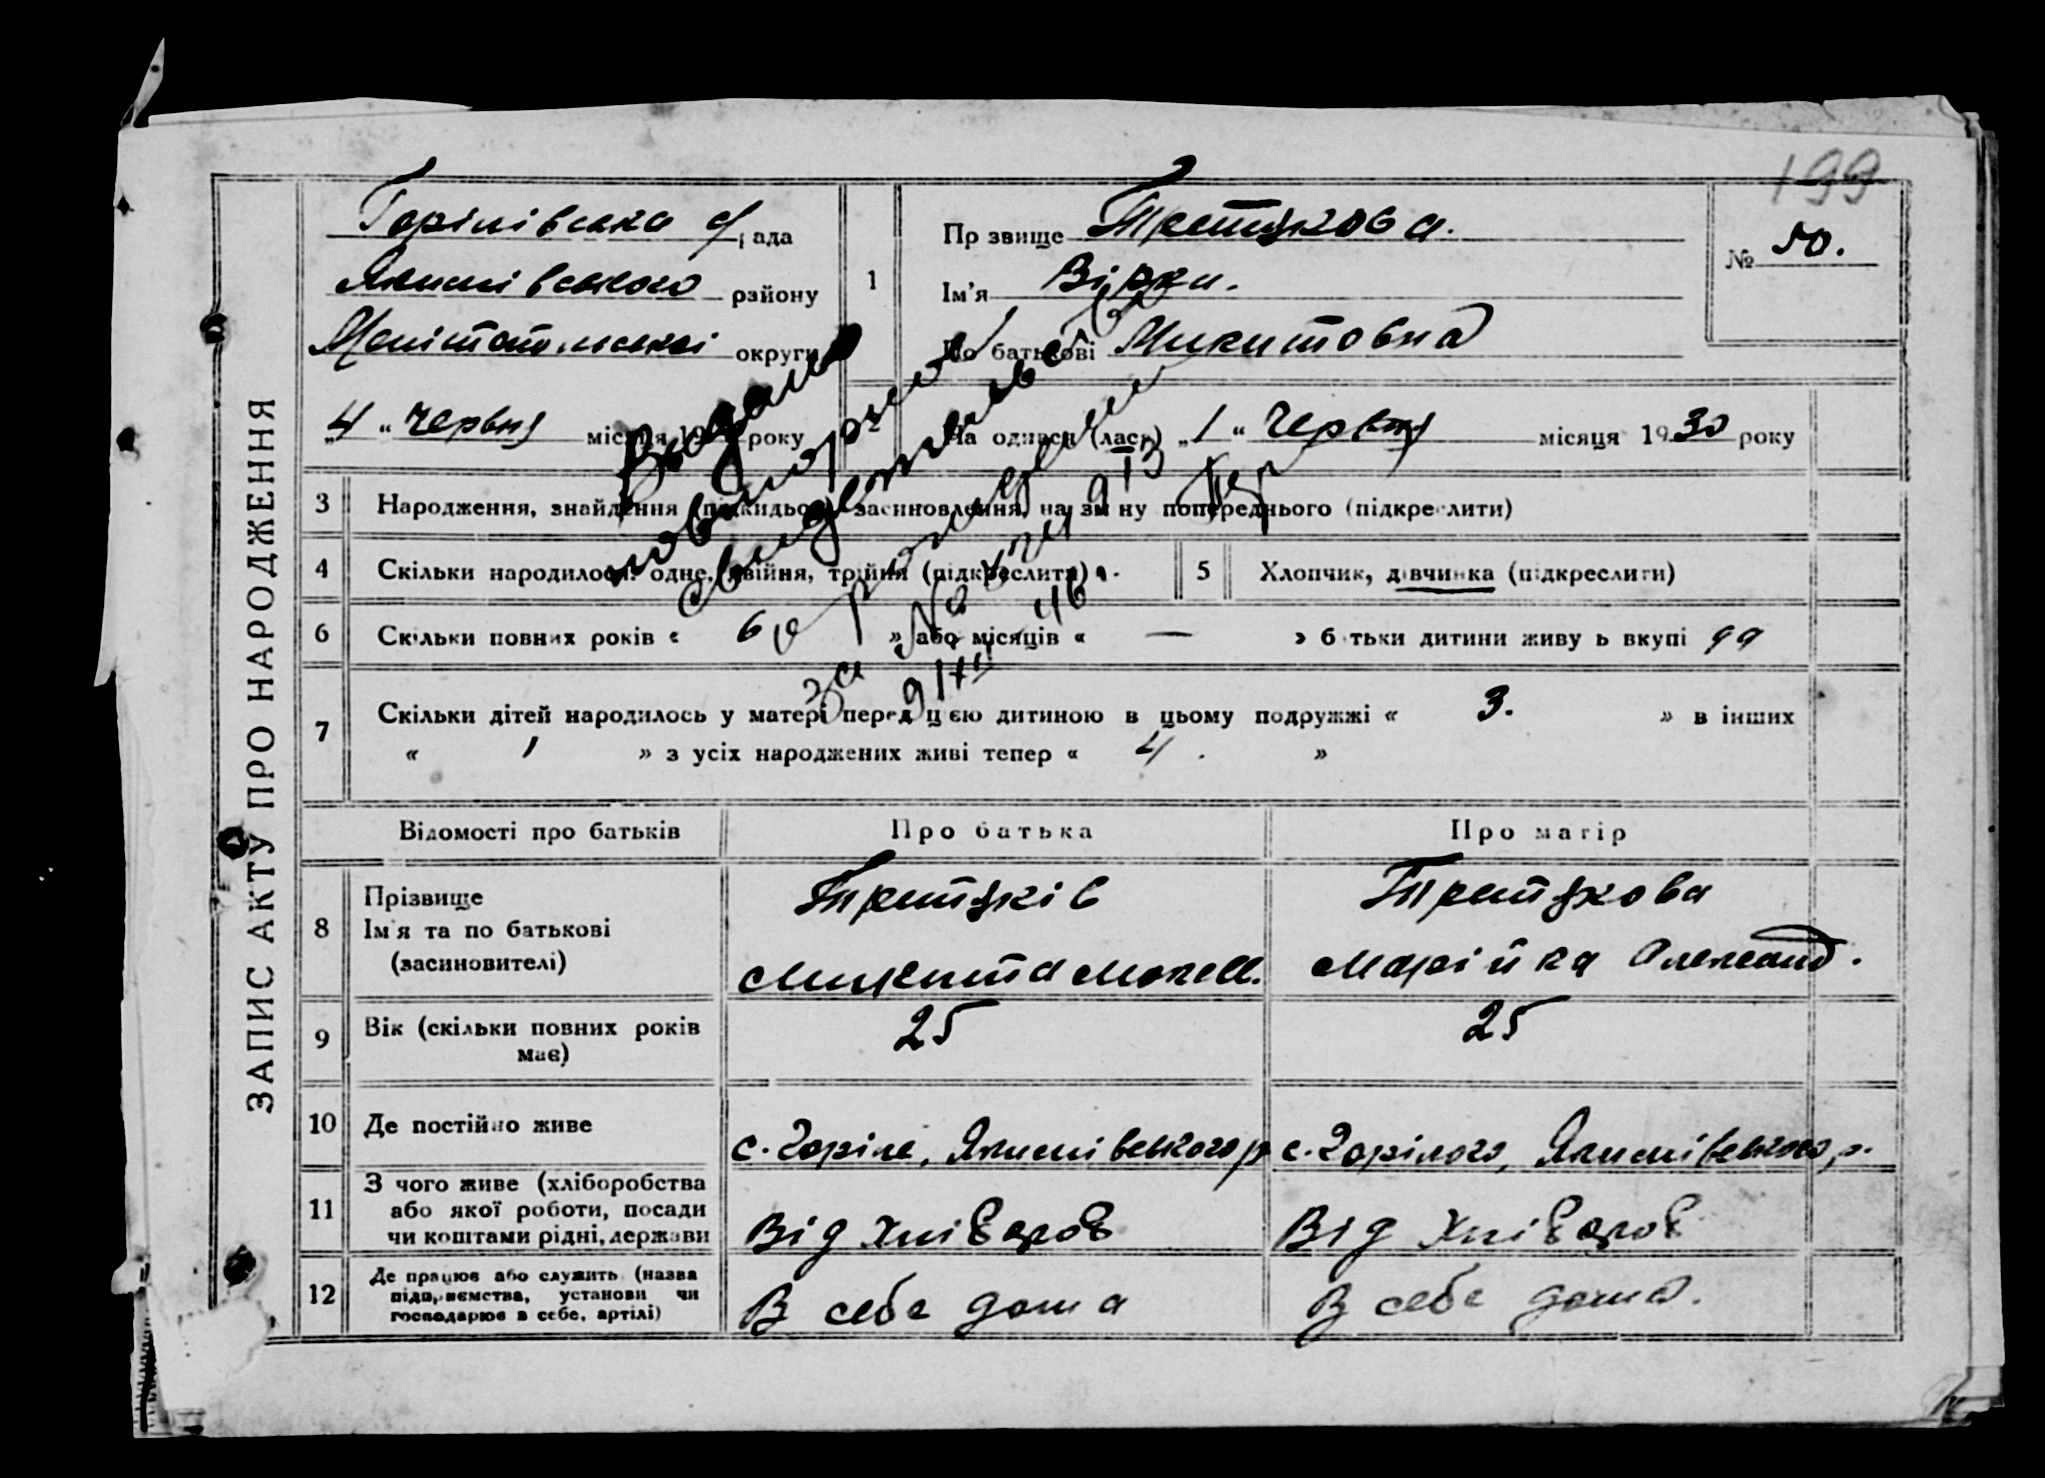 199
Горілівська с/рада
Якимівського району
Мелітопольської округи
Прізвище Третякова.
1 Ім'я Вірка.
По батькові Микитовна
№ 50.
„4“ червня місяця 19 року
На однесн (ласк) „1“ Червня місяця 1930 року
Выдано
повторное
свидетельство
о рождении
за №
9/XII 46
ЗАПИС АКТУ ПРО НАРОДЖЕННЯ
3 Народження, знайдення (підкидьок), засиновлення, на зміну попереднього (підкреслити)
4 Скільки народилося: одне, двійня, трійня (підкреслити) 1.
5 Хлопчик, дівчинка (підкреслити)
6 Скільки повних років « 6 » або місяців « — » батьки дитини живуть вкупі
7 Скільки дітей народилось у матері перед цією дитиною в цьому подружжі « 3. » в інших
« 1 » з усіх народжених живі тепер « 4. »
Відомості про батьків Про батька Про матір
8 Прізвище
Ім'я та по батькові
(засиновителі)
Третяків
Микита
Третякова
Марійка Олександ.
9 Вік (скільки повних років
має)
25
25
10 Де постійно живе
с. Горіле, Якимівського р
с. Горілого, Якимівського р.
11 З чого живе (хліборобства
або якої роботи, посади
чи коштами рідні, держави
Від Хліборобᵴ
Від Хліборобᵴ
12 Де працює або служить (назва
підприємства, установи чи
господарює в себе, артілі)
В себе дома
В себе дома.